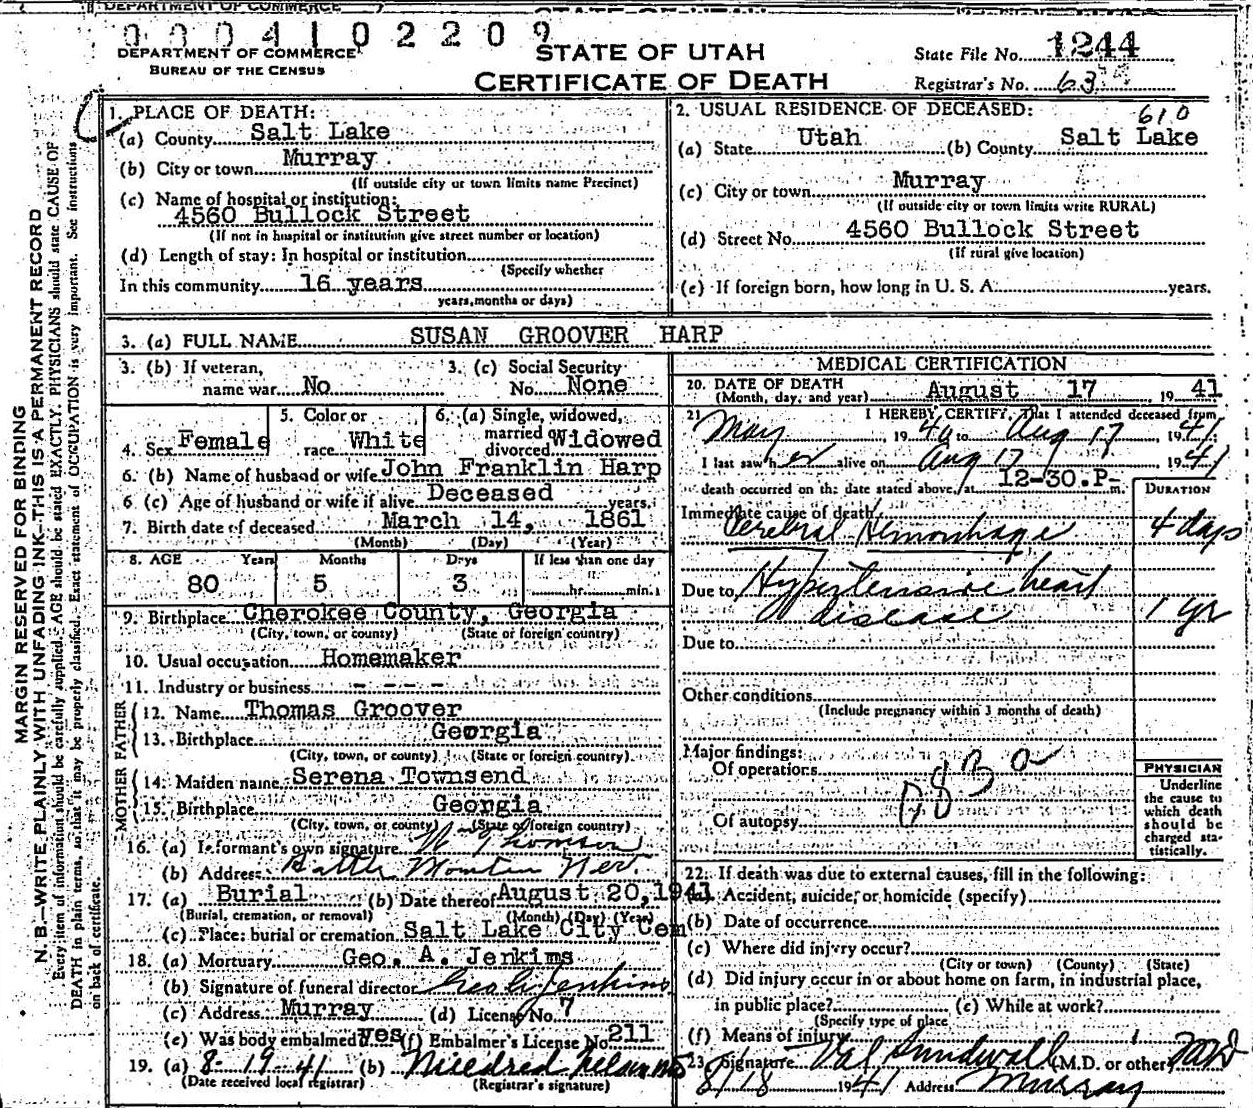 DEPARTMENT OF COMMERCE
0 0 0 4 1 0 2 2 0 9
DEPARTMENT OF COMMERCE
BUREAU OF THE CENSUS
STATE OF UTAH
CERTIFICATE OF DEATH
State File No. 1244
Registrar's No. 63
MARGIN RESERVED FOR BINDING
N. B.—WRITE PLAINLY WITH UNFADING INK—THIS IS A PERMANENT RECORD
Every item of information should be carefully supplied. AGE should be stated EXACTLY. PHYSICIANS should state CAUSE OF
DEATH in plain terms, so that it may be properly classified. Exact statement of OCCUPATION is very important. See instructions
on back of certificate.
1. PLACE OF DEATH:
(a) County Salt Lake
(b) City or town Murray
(If outside city or town limits name Precinct)
(c) Name of hospital or institution:
4560 Bullock Street
(If not in hospital or institution give street number or location)
(d) Length of stay: In hospital or institution
(Specify whether
In this community 16 years
years, months or days)
2. USUAL RESIDENCE OF DECEASED:
610
(a) State Utah (b) County Salt Lake
(c) City or town Murray
(If outside city or town limits write RURAL)
(d) Street No. 4560 Bullock Street
(If rural give location)
(e) If foreign born, how long in U. S. A. years.
3. (a) FULL NAME SUSAN GROOVER HARP
3. (b) If veteran, name war No
3. (c) Social Security No. None
4. Sex Female
5. Color or race White
6. (a) Single, widowed, married divorced Widowed
6. (b) Name of husband or wife John Franklin Harp
6 (c) Age of husband or wife if alive Deceased years.
7. Birth date of deceased March 14, 1861
(Month) (Day) (Year)
8. AGE Years Months Days If less than one day
80 5 3 hr. min.
9. Birthplace Cherokee County, Georgia
(City, town, or county) (State or foreign country)
10. Usual occupation Homemaker
11. Industry or business - - - -
FATHER
12. Name Thomas Groover
13. Birthplace Georgia
(City, town, or county) (State or foreign country)
MOTHER
14. Maiden name Serena Townsend
15. Birthplace Georgia
(City, town, or county) (State or foreign country)
16. (a) Informant's own signature W Thomson
(b) Address Battle Nev.
17. (a) Burial (b) Date thereof August 20, 1941
(Burial, cremation, or removal) (Month) (Day) (Year)
(c) Place: burial or cremation Salt Lake City Cem
18. (a) Mortuary Geo. A. Jenkins
(b) Signature of funeral director Jenkins
(c) Address Murray (d) License No. 7
(e) Was body embalmed? yes (f) Embalmer's License No. 211
19. (a) 8-19-41 (b) Mildred
(Date received local registrar) (Registrar's signature)
MEDICAL CERTIFICATION
20. DATE OF DEATH
(Month, day, and year) August 17 1941
21 I HEREBY CERTIFY, That I attended deceased from
May, 1940 to Aug 17, 1941;
I last saw her alive on Aug 17 1941
death occurred on the date stated above, at 12-30.P-m.
DURATION
Immediate cause of death
Cerebral Hemorrhage 4 days
Due to Hypertensive heart
disease 1 yr
Due to
Other conditions
(Include pregnancy within 3 months of death)
Major findings:
Of operations
83a
Of autopsy
PHYSICIAN
Underline
the cause to
which death
should be
charged sta-
tistically.
22. If death was due to external causes, fill in the following:
(a) Accident, suicide, or homicide (specify)
(b) Date of occurrence
(c) Where did injury occur?
(City or town) (County) (State)
(d) Did injury occur in or about home on farm, in industrial place,
in public place? (e) While at work?
(Specify type of place
(f) Means of injury
23 Signature Val Sundwall (M.D. or other)
8/18 1941 Address Murray